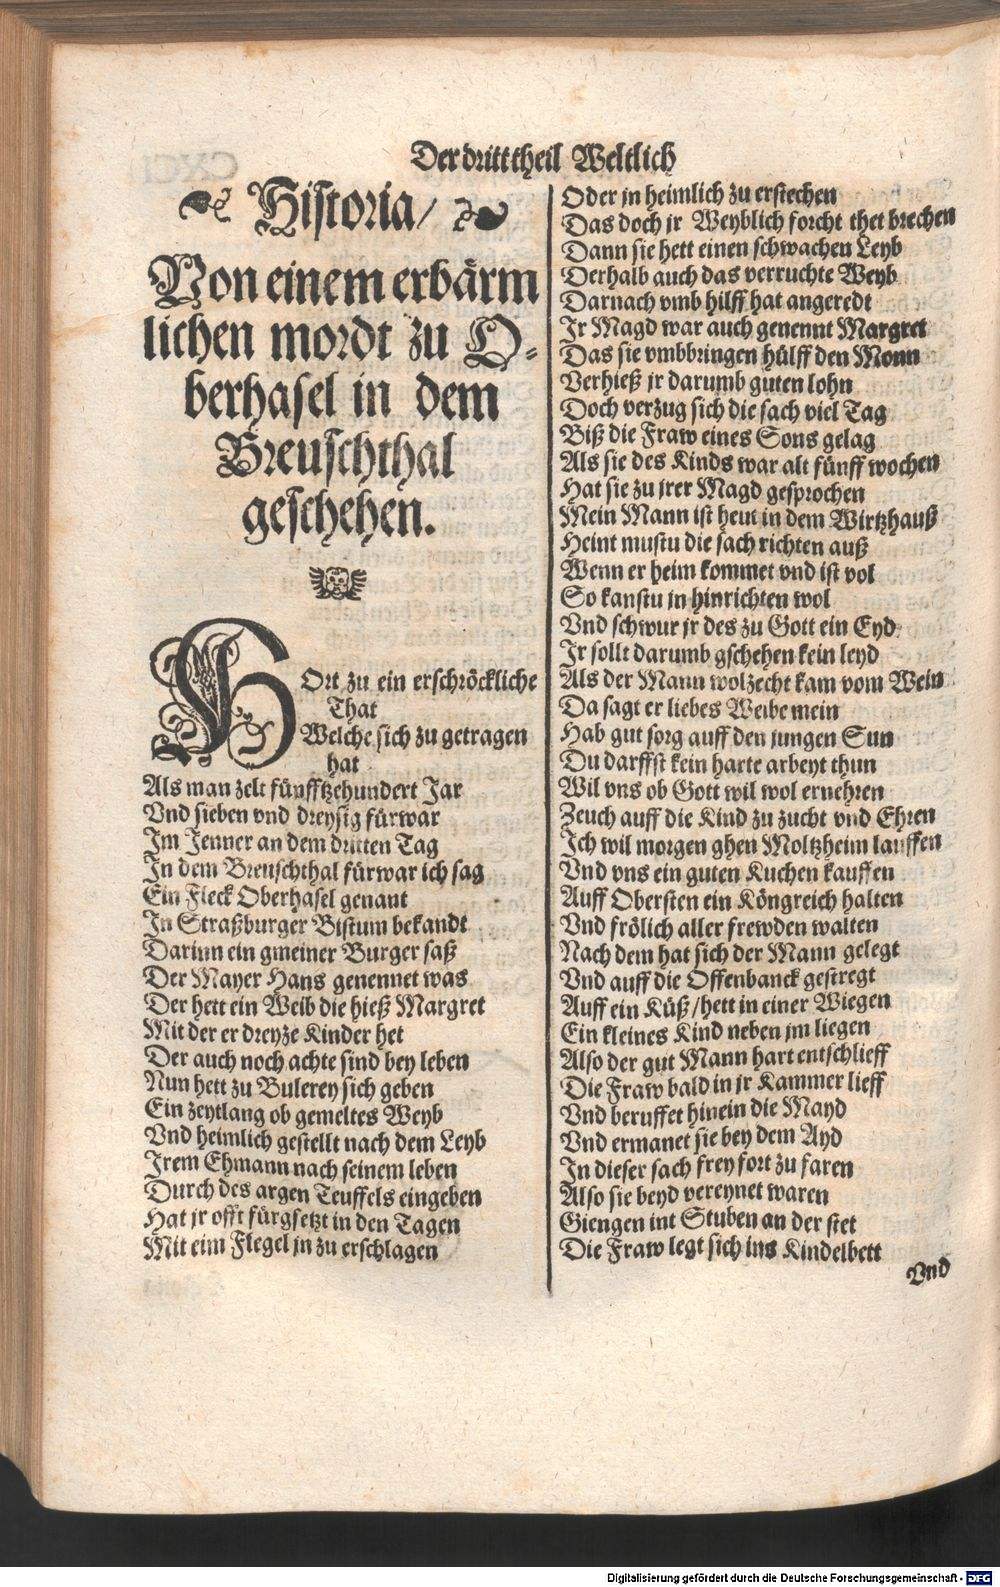 Der dritt theil Weltlich
Historia/
Von einem erbärm
lichen mordt zu O-
berhasel in dem
Breuschthal
geschehen.
HOrt zu ein erschröckliche
That
Welche sich zu getragen
hat
Als man zelt fünfftzehundert Jar
Vnd sieben vnd dreysig fürwar
Im Jenner an dem dritten Tag
In dem Breuschthal fürwar ich sag
Ein Fleck Oberhasel genant
In Straßburger Bistum bekandt
Darinn ein gmeiner Burger saß
Der Mayer Hans genennet was
Der hett ein Weib die hieß Margret
Mit der er dreyze Kinder het
Der auch noch achte sind bey leben
Nun hett zu Bulerey sich geben
Ein zeytlang ob gemeltes Weyb
Vnd heimlich gestellt nach dem Leyb
Irem Ehmann nach seinem leben
Durch des argen Teuffels eingeben
Hat jr offt fürgsetzt in den Tagen
Mit eim Flegel jn zu erschlagen
Oder jn heimlich zu erstechen
Das doch jr Weyblich forcht thet brechen
Dann sie hett einen schwachen Leyb
Derhalb auch das verruchte Weyb
Darnach vmb hilff hat angeredt
Jr Magd war auch genennt Margret
Das sie vmbbringen hülff den Monn
Verhieß jr darumb guten lohn
Doch verzug sich die sach viel Tag
Biß die Fraw eines Sons gelag
Als sie des Kinds war alt fünff wochen
Hat sie zu jrer Magd gesprochen
Mein Mann ist heut in dem Wirtzhauß
Heint mustu die sach richten auß
Wenn er heim kommet vnd ist vol
So kanstu jn hinrichten wol
Vnd schwur jr des zu Gott ein Eyd
Jr sollt darumb gschehen kein leyd
Als der Mann wolzecht kam vom Wein
Da sagt er liebes Weibe mein
Hab gut sorg auff den jungen Sun
Du darffst kein harte arbeyt thun
Wil vns ob Gott wil wol ernehren
Zeuch auff die Kind zu zucht vnd Ehren
Ich wil morgen ghen Moltzheim lauffen
Vnd vns ein guten Kuchen kauffen
Auff Obersten ein Köngreich halten
Vnd frölich aller frewden walten
Nach dem hat sich der Mann gelegt
Vnd auff die Offenbanck gestregt
Auff ein Küß/hett in einer Wiegen
Ein kleines Kind neben jm liegen
Also der gut Mann hart entschlieff
Die Fraw bald in jr Kammer lieff
Vnd beruffet hinein die Mayd
Vnd ermanet sie bey dem Ayd
In dieser sach frey fort zu faren
Also sie beyd vereynet waren
Giengen int Stuben an der stet
Die Fraw legt sich ins Kindelbett
Vnd
Digitalisierung gefördert durch die Deutsche Forschungsgemeinschaft - DFG